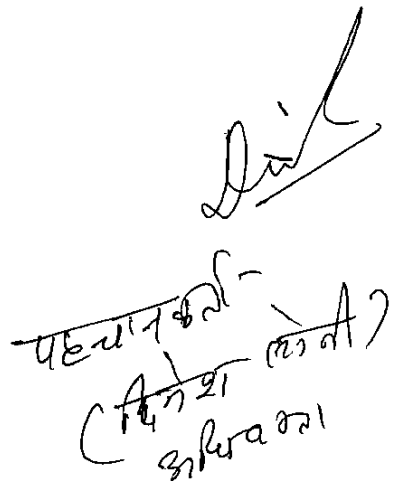 पहचानकर्ता-
(दिनेश सोनी)
अधिवक्ता